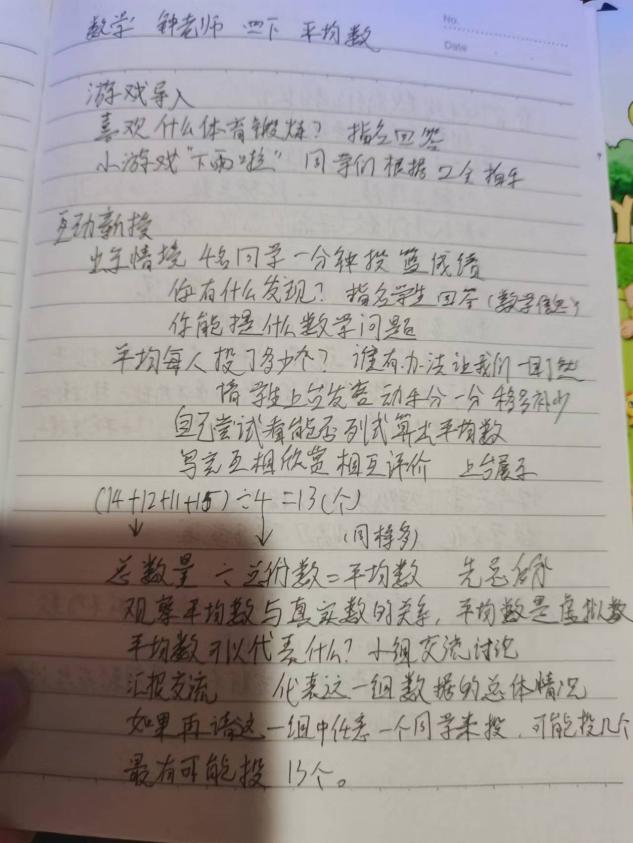 No.
Date
数学 钟老师 四下 平均数
游戏导入
喜欢什么体育锻炼？ 指名回答
小游戏“下雨啦” 同学们根据口令拍手
互动新授
出示情境 4名同学一分钟投篮成绩
你有什么发现？ 指名学生回答（数学信息）
你能提什么数学问题
平均每人投了多少个？ 谁有办法让我们一目了然
请学生上台发言 动手分一分 移多补少
自己尝试看能否列式算出平均数
写完互相欣赏 相互评价 上台展示
(14+12+11+15)÷4=13(个)
(同样多)
总数量 ÷ 总份数=平均数 先总后分
观察平均数与真实数的关系，平均数是虚拟数
平均数可以代表什么？ 小组交流讨论
汇报交流 代表这一组数据的总体情况
如果再请这一组中任意一个同学来投，可能投几个
最有可能投 13个。